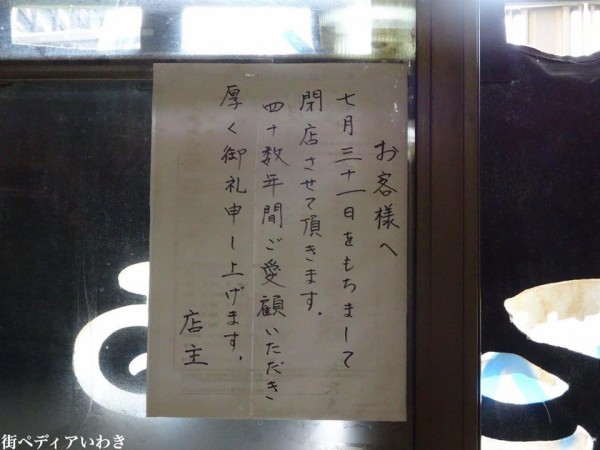 お客様へ
七月三十一日をもちまして
閉店させて頂きます。
四十数年間ご愛顧いただき
厚く御礼申し上げます。
店主
街ペディアいわき